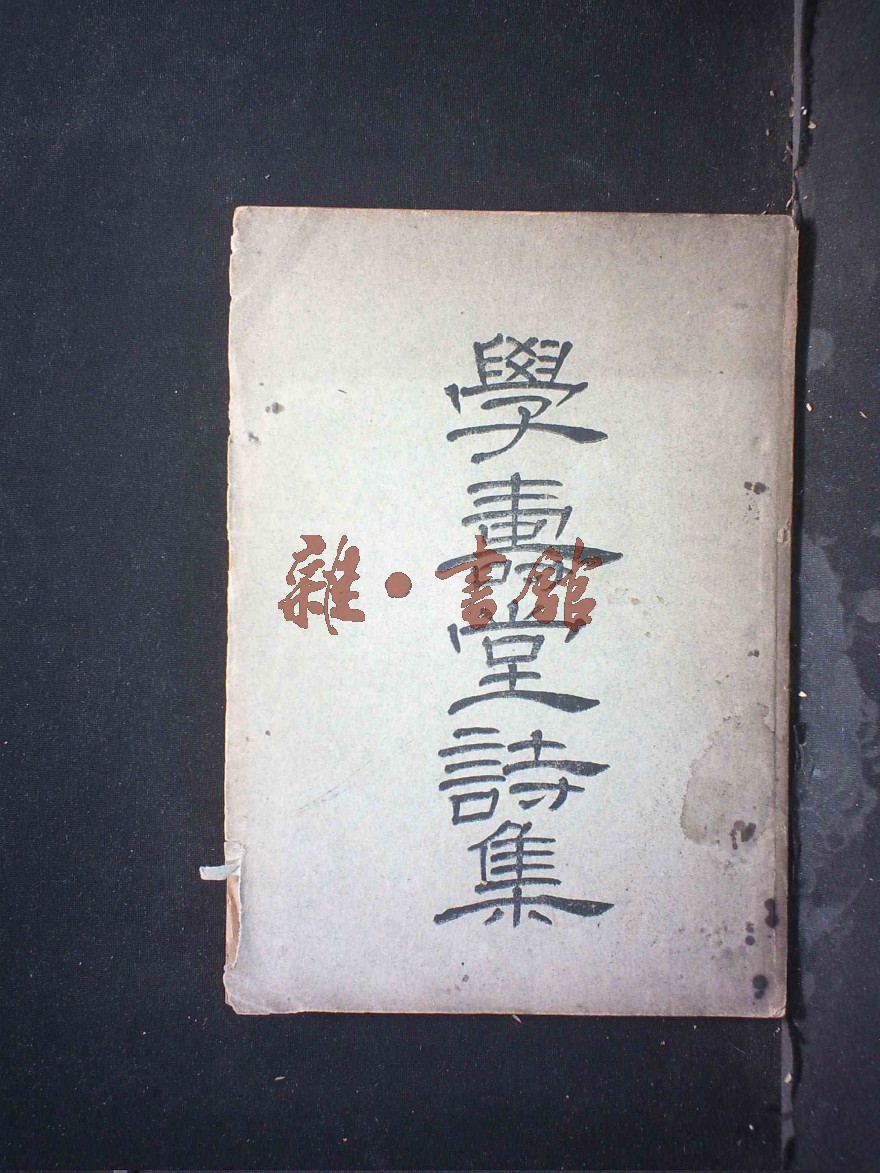 學壽堂詩集
雜·書館